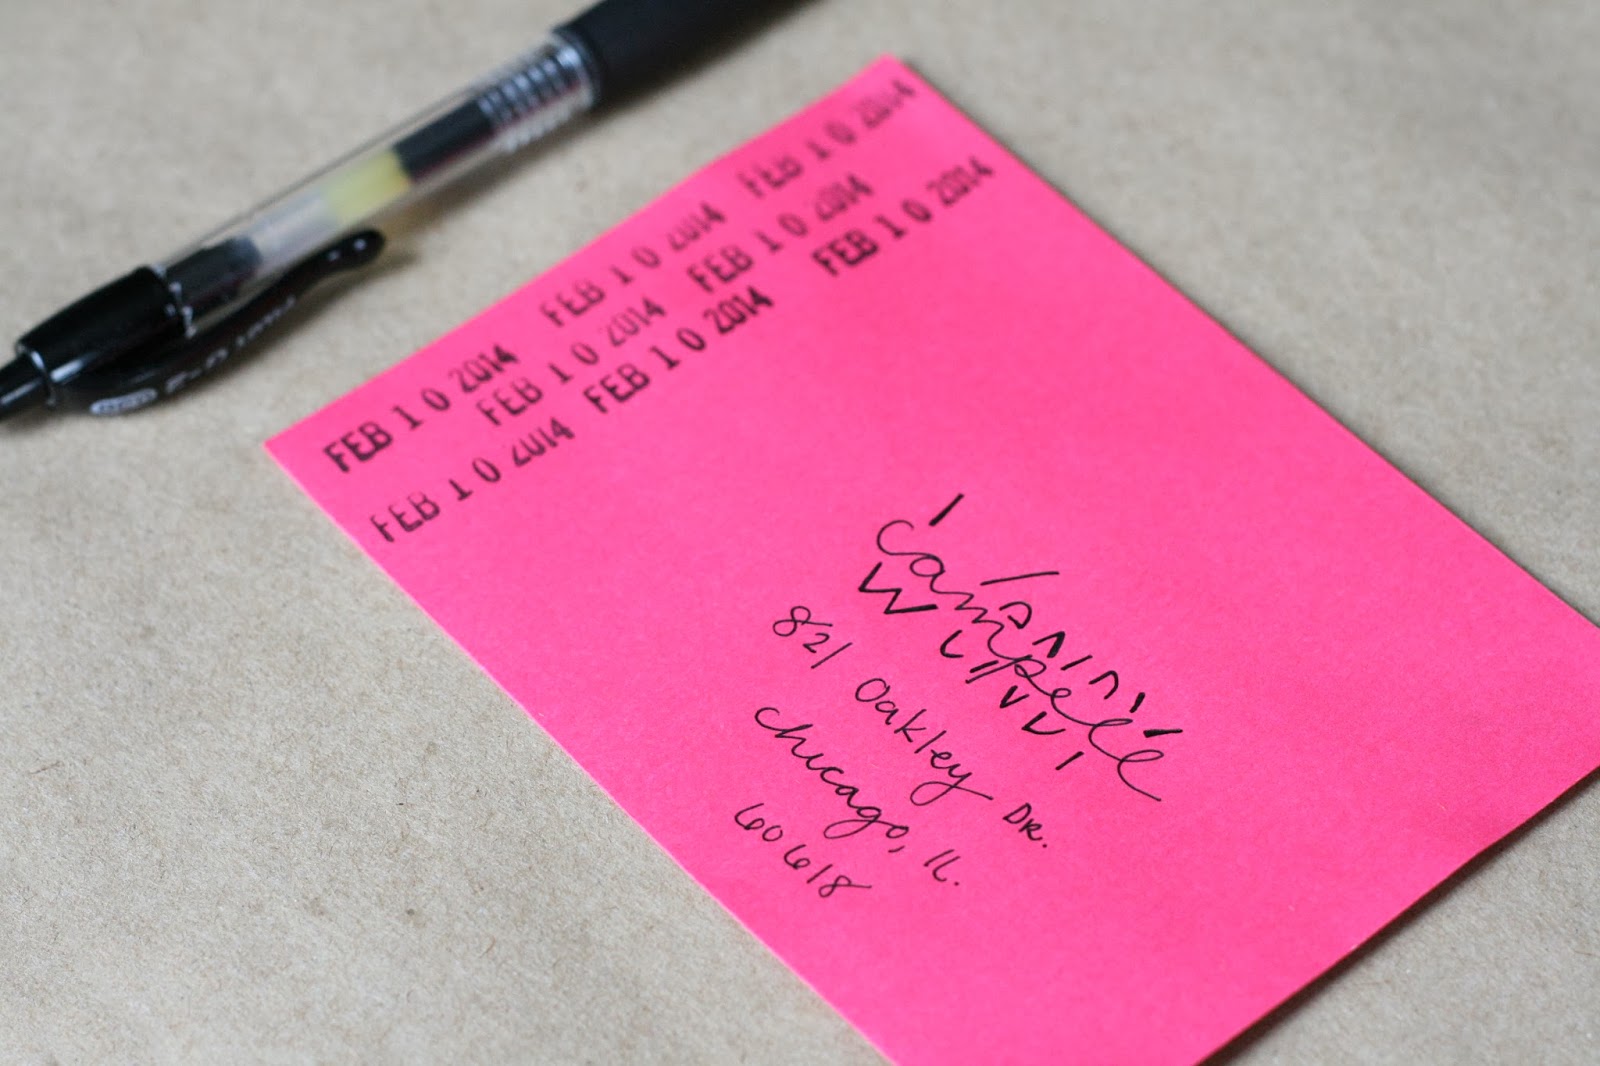 FEB 10 2014 FEB 10 2014 FEB 10 2014
FEB 10 2014 FEB 10 2014
FEB 10 2014 FEB 10 2014 FEB 10 2014
campell
821 Oakley DR.
Chicago, IL.
60618